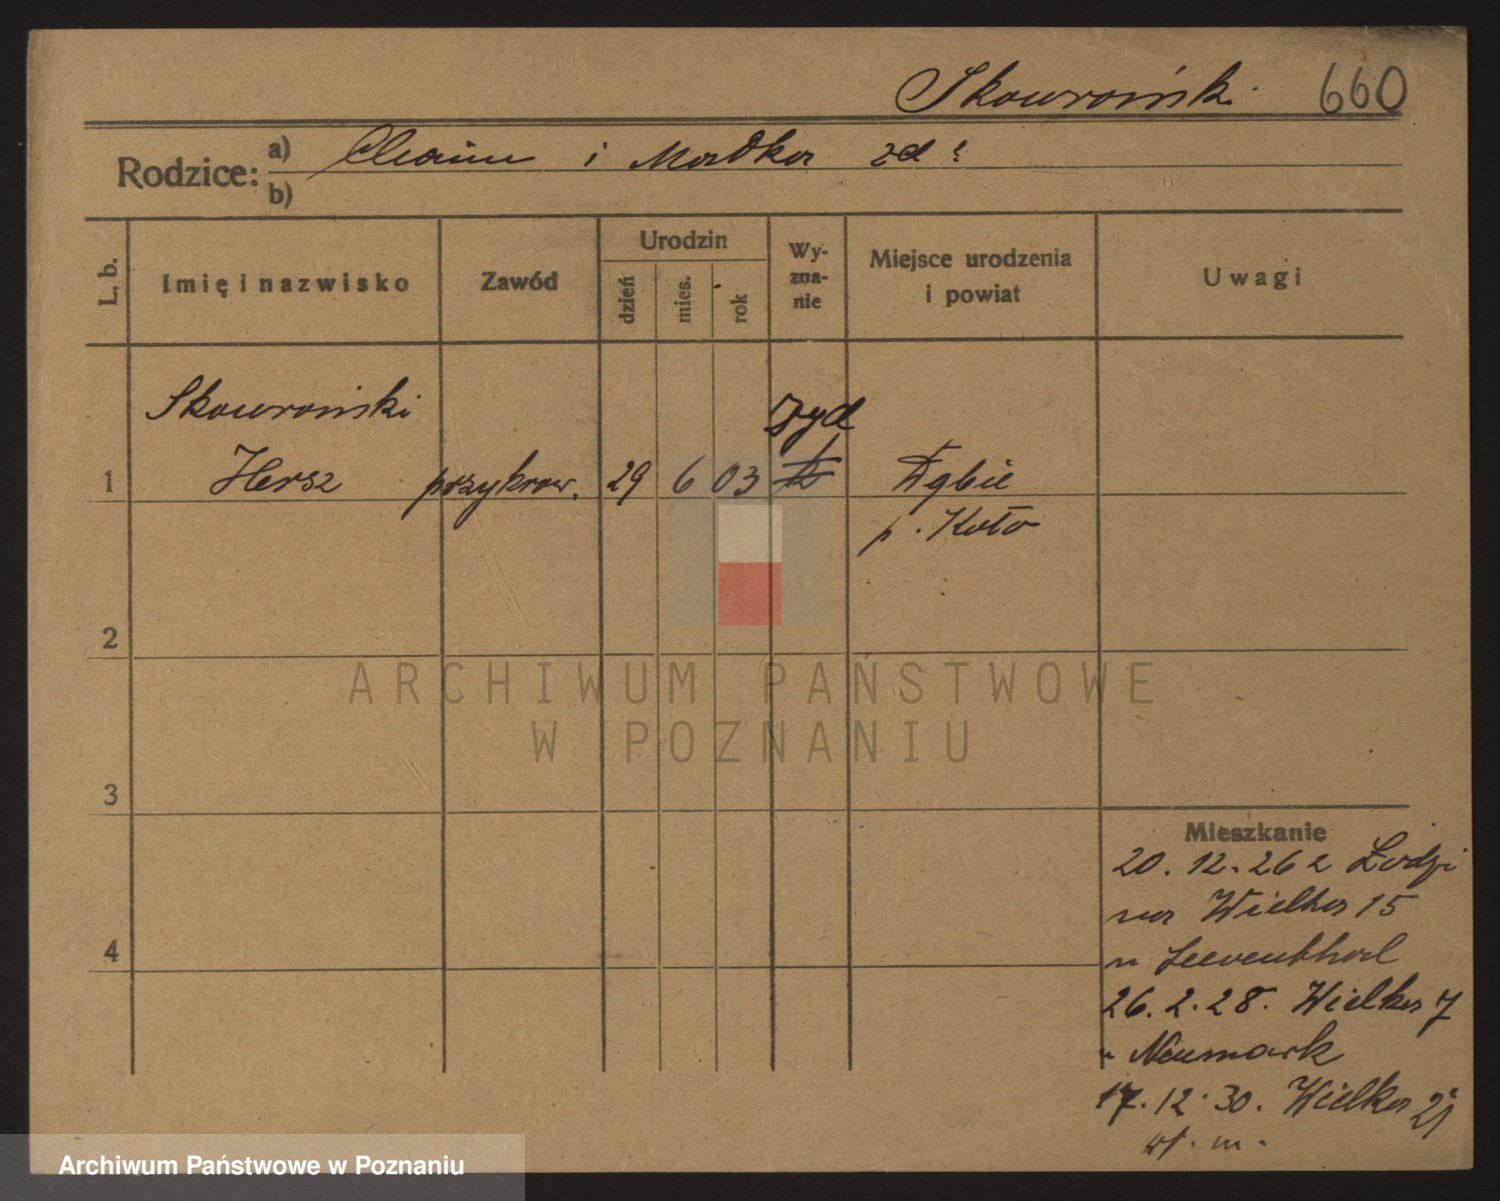 Skowroński 660
Rodzice: a) Chaim i Mordka zd ?
b)
L. b. Imię i nazwisko Zawód Urodzin dzień mies. rok Wy-zna-nie Miejsce urodzenia i powiat Uwagi
Skowroński żyd
1 Hersz przykrow. 29 6 03 Dąbie
p. Koło
2
ARCHIWUM PAŃSTWOWE
W POZNANIU
3
Mieszkanie
20.12.26 z Łodzi
na Wielka 15
u
26.2.28. Wielka 7
u Neumark
17.12.30. Wielka 21
wł. m.
4
Archiwum Państwowe w Poznaniu